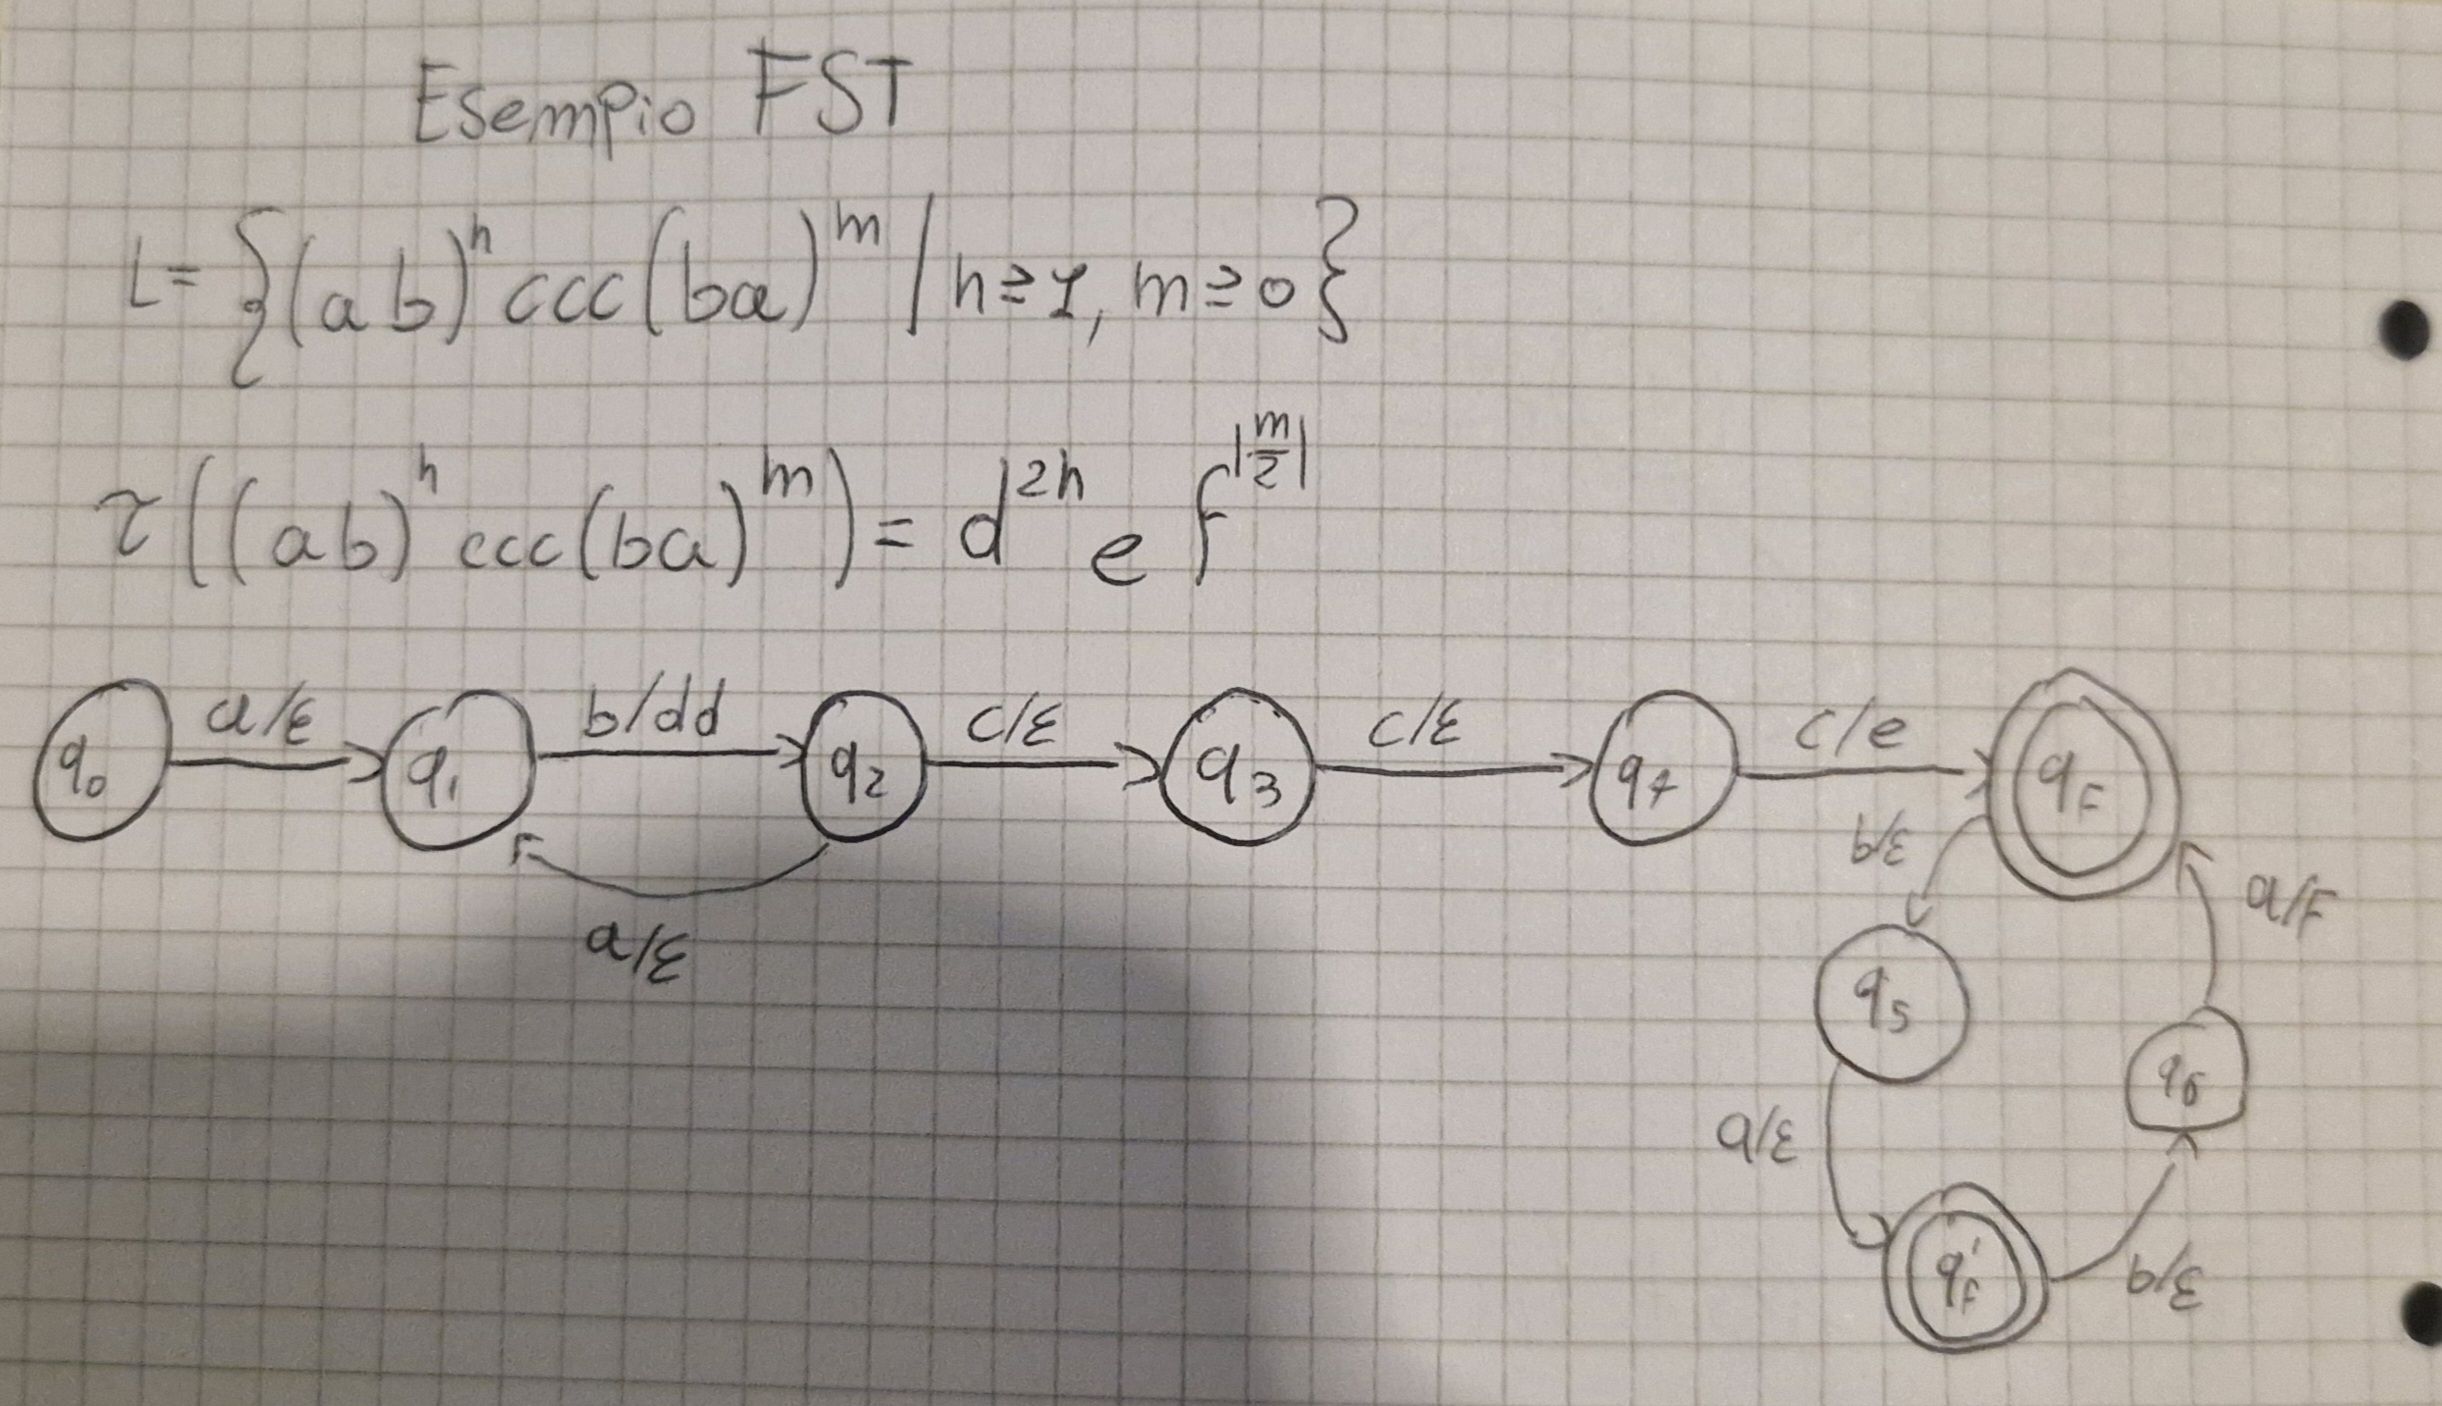 Esempio FST
L = {(ab)ⁿ ccc (ba)ᵐ | n ≥ 1, m ≥ 0}
τ((ab)ⁿ ccc (ba)ᵐ) = d²ⁿ e f^|m/2|
q₀ a/ε q₁ b/dd q₂ c/ε q₃ c/ε q₄ c/e q_F
b/ε a/F
a/ε
q₅
q₆
a/ε
q'_F b/ε